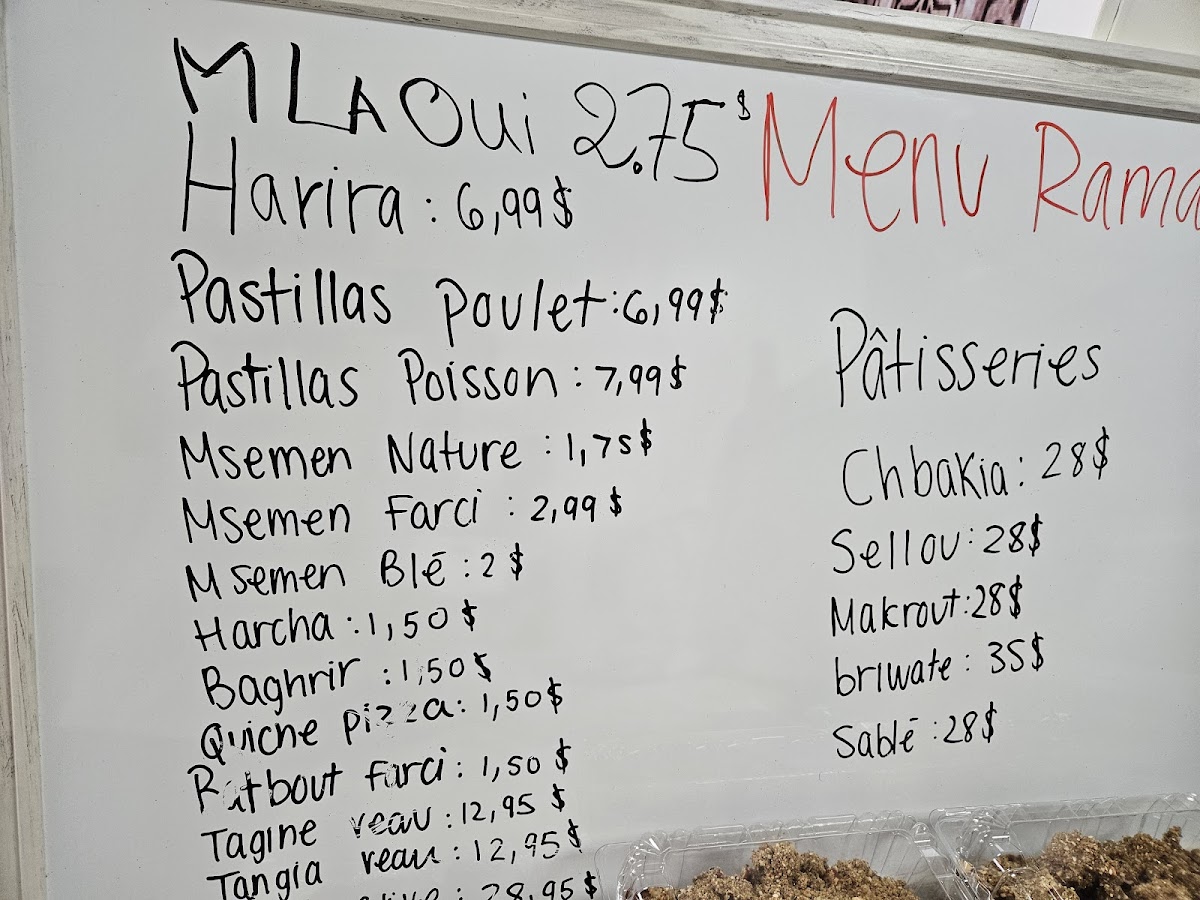 MLAOui 2.75$
Harira : 6,99$
Pastillas Poulet : 6,99$
Pastillas Poisson : 7,99$
Msemen Nature : 1,75$
Msemen Farci : 2,99$
Msemen Blé : 2$
Harcha : 1,50$
Baghrir : 1,50$
Quiche pizza : 1,50$
Ratbout farci : 1,50$
Tagine veau : 12,95$
Tangia veau : 12,95$
: 28,95$
Menu Rama
Pâtisseries
Chbakia : 28$
Sellou : 28$
Makrout : 28$
briwate : 35$
Sablé : 28$